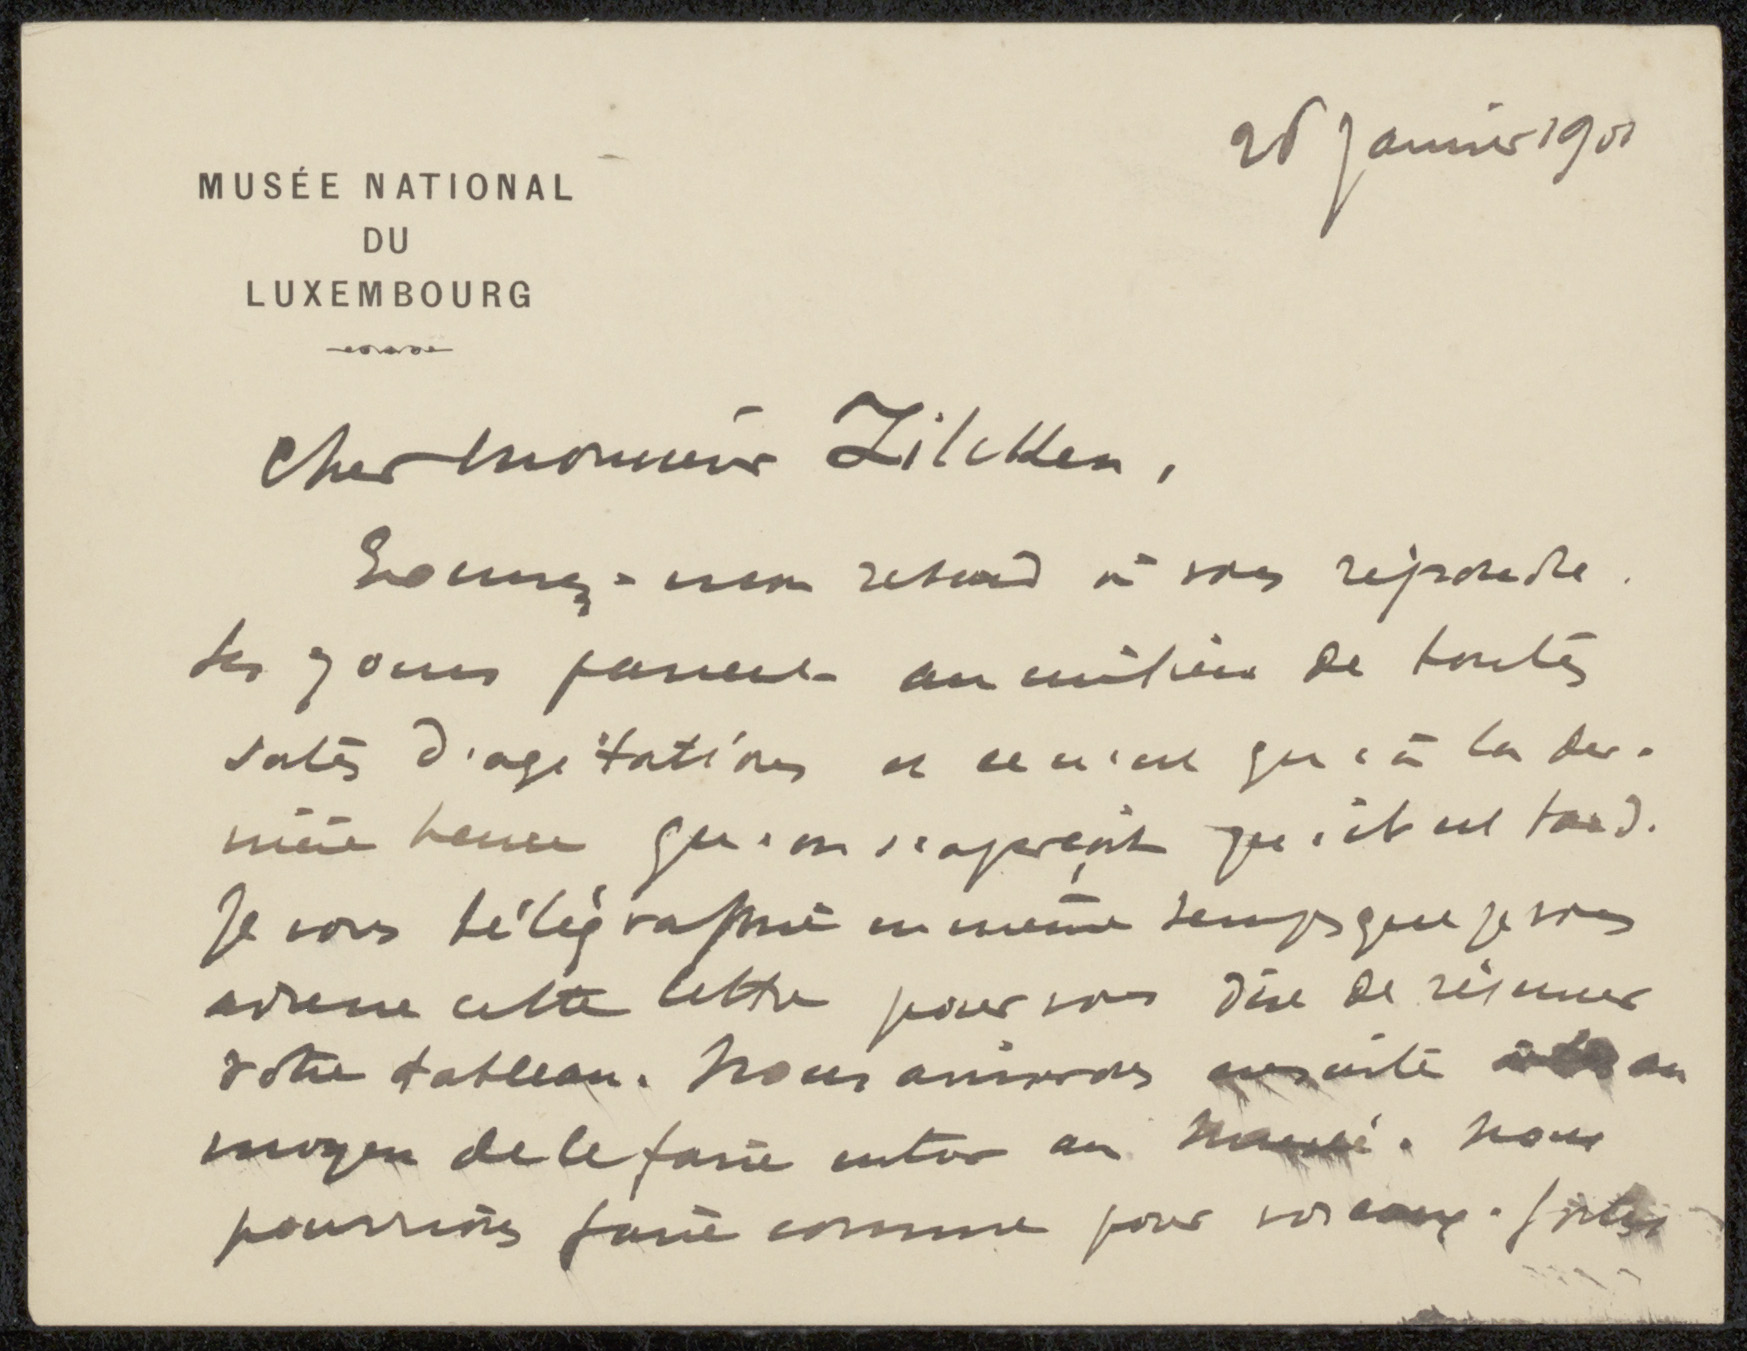 26 Janvier 1901
MUSÉE NATIONAL
DU
LUXEMBOURG
Cher Monsieur Zilcken,
Excusez-mon retard à vous répondre.
Les jours passent au milieu de toutes
sortes d'agitations et ce n'est qu'à la der-
nière heure qu'on s'aperçoit qu'il est tard.
Je vous télégraphie en même temps que je vous
adresse cette lettre pour vous dire de réserver
votre tableau. Nous aviserons ensuite au
moyen de le faire entrer au Musée. Nous
pourrions faire comme pour vos eaux-fortes